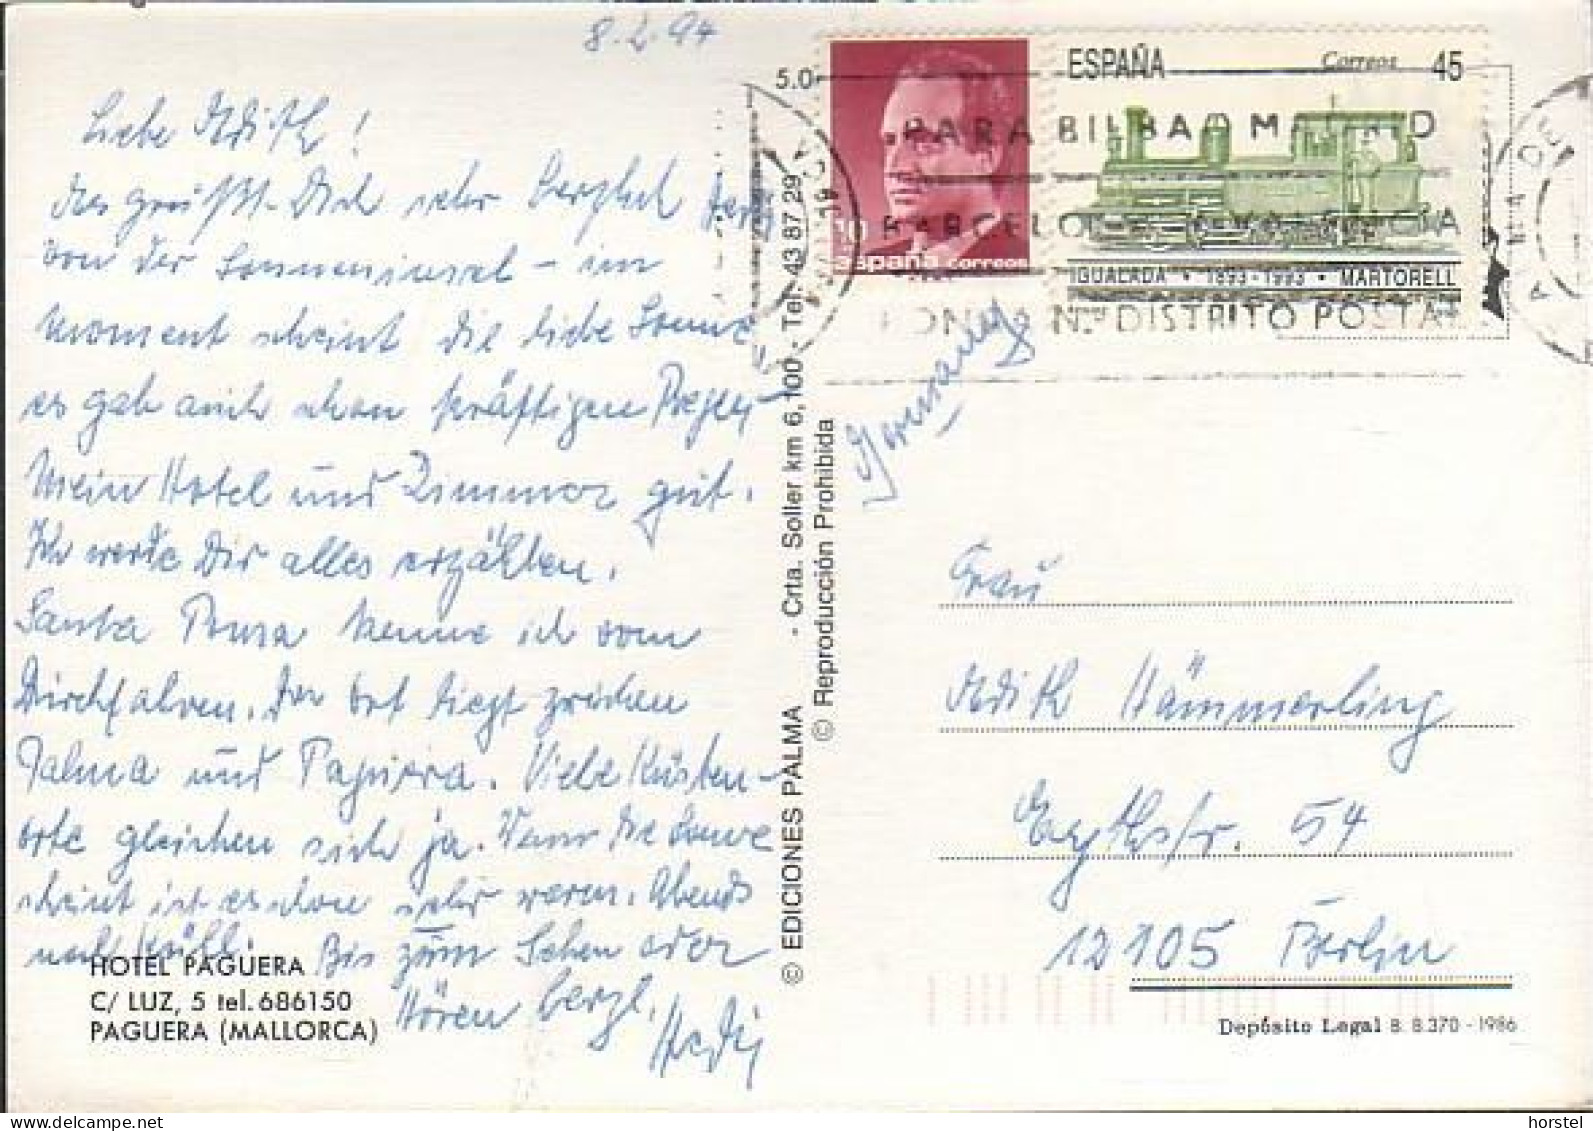 8.2.94
Liebe Edith!
Es grüßt Dich sehr herzlich
von der Sonneninsel - im
Moment scheint die liebe Sonne
es gab auch schon kräftigen Regen
Mein Hotel und Zimmer gut.
Ich werde Dir alles erzählen.
Santa Ponsa kenne ich vom
Durchfahren. Der Ort liegt zwischen
Palma und Paguera. Viele Küsten-
orte gleichen sich ja. Wenn die Sonne
scheint ist es schon sehr warm. Abends
noch kühl. Bis zum Sehen oder
Hören herzl.
HOTEL PAGUERA
C/ LUZ, 5 tel. 686150
PAGUERA (MALLORCA)
© EDICIONES PALMA - Crta. Soller km 6,100 - Tel. 43 87 29
© Reproducción Prohibida
5.0
10
españa correos
ESPAÑA Correos 45
IGUALADA • 1893-1993 • MARTORELL
PARA BILBAO MADRID
BARCELONA Y VALENCIA
PONGA N.º DISTRITO POSTAL
Frau
Edith Hämmerling
12105 Berlin
Depósito Legal B. 8.370 - 1986